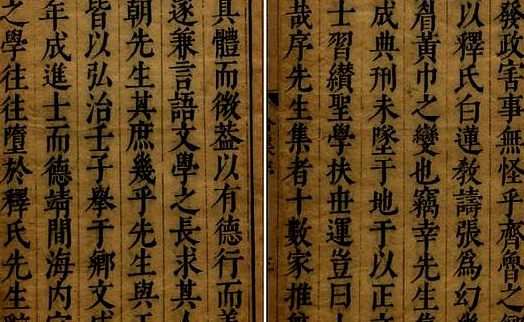 發政害事無怪乎齊魯之
以釋氏白蓮教譸張為幻
胥黃巾之變也竊幸先生
成典刑未墜于地于以正文
士習纘聖學扶世運豈曰
哉序先生集者十數家推
具體而微葢以有德行而
遂兼言語文學之長求其人
朝先生其庶幾乎先生與
皆以弘治壬子舉于鄉文成
年成進士而德靖間海內
之學往往墮於釋氏先生